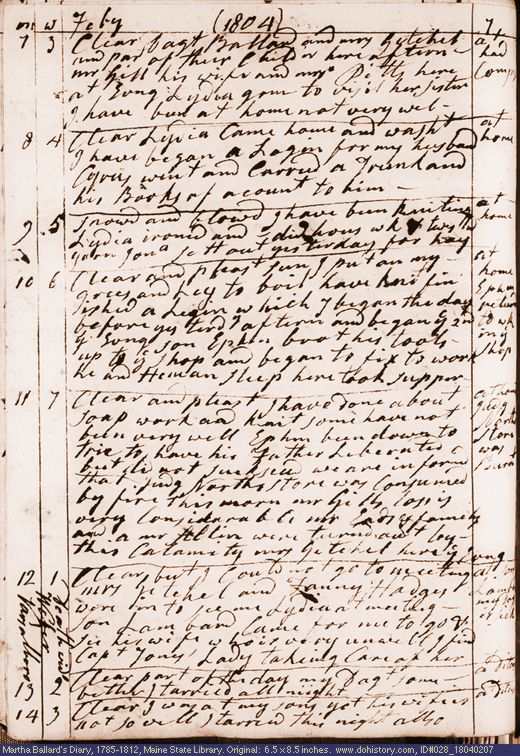 m w Feby (1804) 7
7 3 Clear Dagt Ballard and mrs Getchel at
and par of their Children here afternn had
mr Gill his wife and mrs Pitts here Compy
at Evng Lydia gone to visit her sister
I have been at home not very wel -
8 4 Clear Lydia Came home and washt at
I have began a Legin for my husband home
Cyrus went and Carried a Trunk and
his Books of acount to him -
9 5 Snowd and Blowd I have been kniting at
Lydia ironed and home
Jona set out yesterday for
10 6 Clear and pleast I put on my at
grees and ley to boil have knit fin home
ished a Legin which I began the day Ephm
before yesterd afternn and began
ye Evng son Ephm brot his tools to wk
up to ye shop and began to fix to work in ye
he and Heman sleep here took supper shop
11 7 Clear and pleast I have done about at home
soap work and knit some have not
been very well Ephm been down to
trie to have his Father Liberated Store
but did not suckseed we are informd was
that Judg Norths store was Consumed Burnt
by fire this morn mr Gills loss is
very Considerable mr family
and a mr Allen were turnd out by
this Calamity mrs Getchel here
12 1 Clear but I Could not go to meeting at
mrs Getchel and Fanny Hadges
were in to see me Lydia at meeting
son Lambard Came for me to go &
see his wife who is very unwell I find
Capt Jones Lady takeing Care of her
13 2 Clear part of the day my Dagt some at Ditoes
better I tarried all night
14 3 Clear I was at my sons yet his wife is at Ditoes
not so well I tarried this night allso
Martha Ballard's Diary, 1785-1812, Maine State Library. Original: 6.5 x 8.5 inches. www.dohistory.com, ID#028_18040207